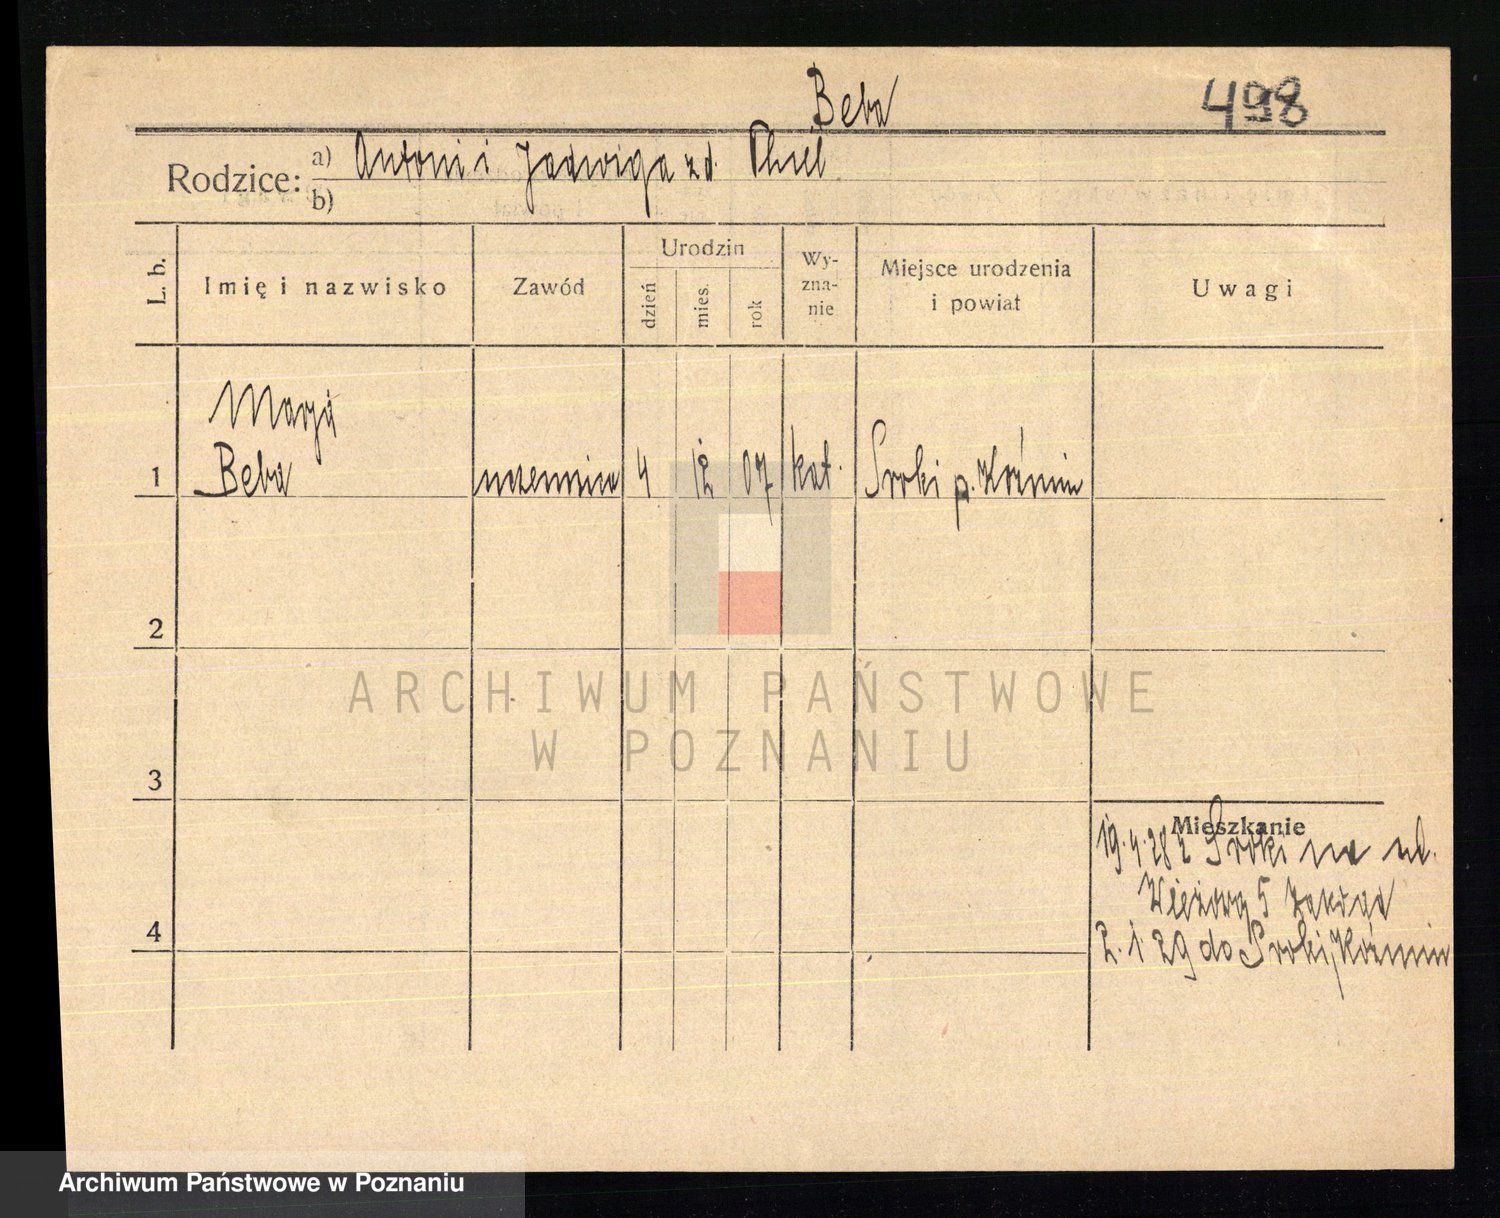 Beba
498
Rodzice: a) Antoni i Jadwiga zd.
b)
L. b.
Imię i nazwisko
Zawód
Urodzin
dzień
mies.
rok
Wy-
zna-
nie
Miejsce urodzenia
i powiat
Uwagi
1
Marja
Beba
uczennica
4
12
07
kat.
Sroki p. Koźmin
2
3
4
Mieszkanie
19.4.28 z Sroki na ul.
Wieżową 5
2.1.29 do Sroki, Koźmin
ARCHIWUM PAŃSTWOWE
W POZNANIU
Archiwum Państwowe w Poznaniu